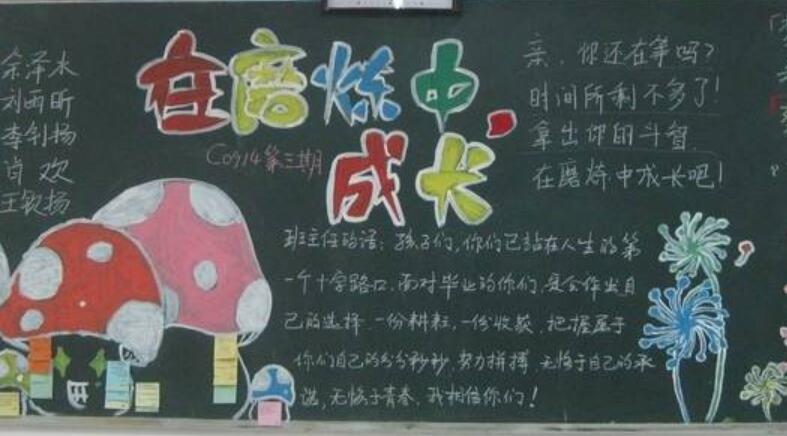 余泽水
刘雨昕
李剑扬
肖欢
王敏扬
在磨炼中,
成长
C0914第三期
亲,你还在等吗?
时间所剩不多了!
拿出你的斗智,
在磨炼中成长吧!
班主任的话:孩子们,你们已站在人生的第
一个十字路口,面对毕业的你们,要会作出自
己的选择.一份耕耘,一份收获,把握属于
你们自己的分分秒秒,努力拼搏,无愧于自己的承
诺,无愧于青春,我相信你们!